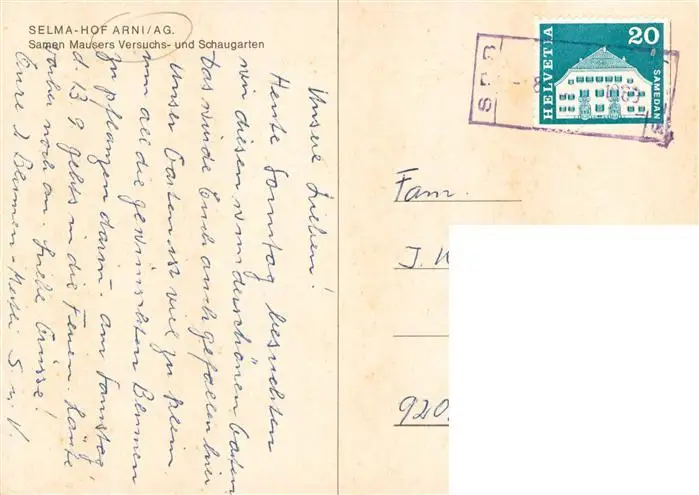 SELMA-HOF ARNI/AG.
Samen Mausers Versuchs- und Schaugarten
Unsere Lieben!
Heute Sonntag besuchten
wir diesen wunderschönen Garten
Das würde Euch auch gefallen hier.
Unser Garten ist viel zu klein
um all die gewünschten Blumen
zu pflanzen darin. Am Samstag
d. 13. 9. gehts in die Ferien. Läute
vorher noch an. Liebe Grüsse!
Eure 2 Blumen-
HELVETIA
20
SAMEDAN
SBB
Fam.
J.
920